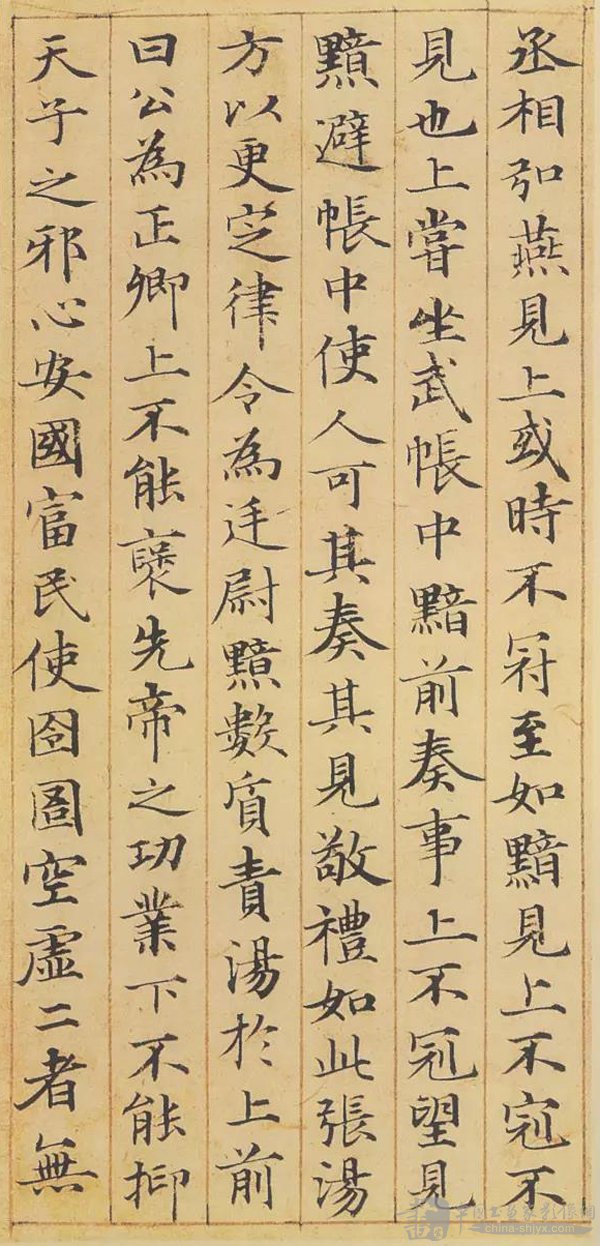 丞相弘燕見上或時不冠至如黯見上不冠不
見也上嘗坐武帳中黯前奏事上不冠望見
黯避帳中使人可其奏其見敬禮如此張湯
方以更定律令為廷尉黯數質責湯於上前
曰公為正卿上不能褒先帝之功業下不能抑
天子之邪心安國富民使囹圄空虛二者無
china-shjyx.com